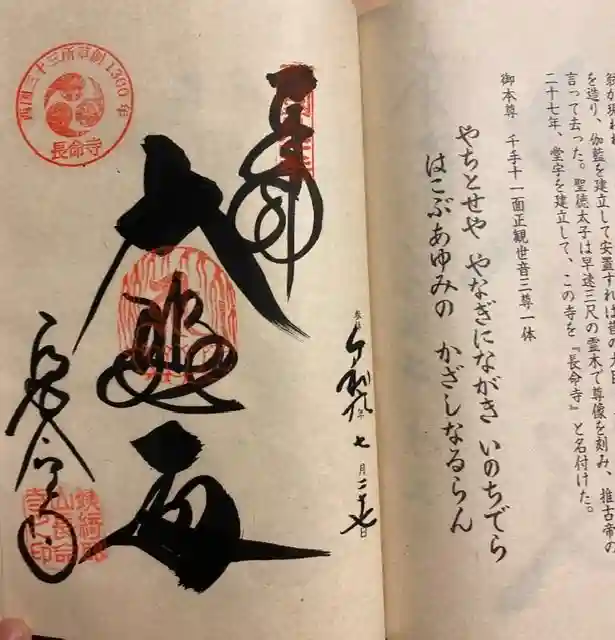 を造り、伽藍を建立して安置すれば
言って去った。聖徳太子は早速三尺の霊木で尊像を刻み、推古帝の
二十七年、堂宇を建立して、この寺を『長命寺』と名付けた。
御本尊 千手十一面正観世音三尊一体
やちとせや やなぎにながき いのちでら
はこぶあゆみの かざしなるらん
西国三十三所草創1300年
長命寺
奉拝
大悲殿
長命寺
年七月二十七日